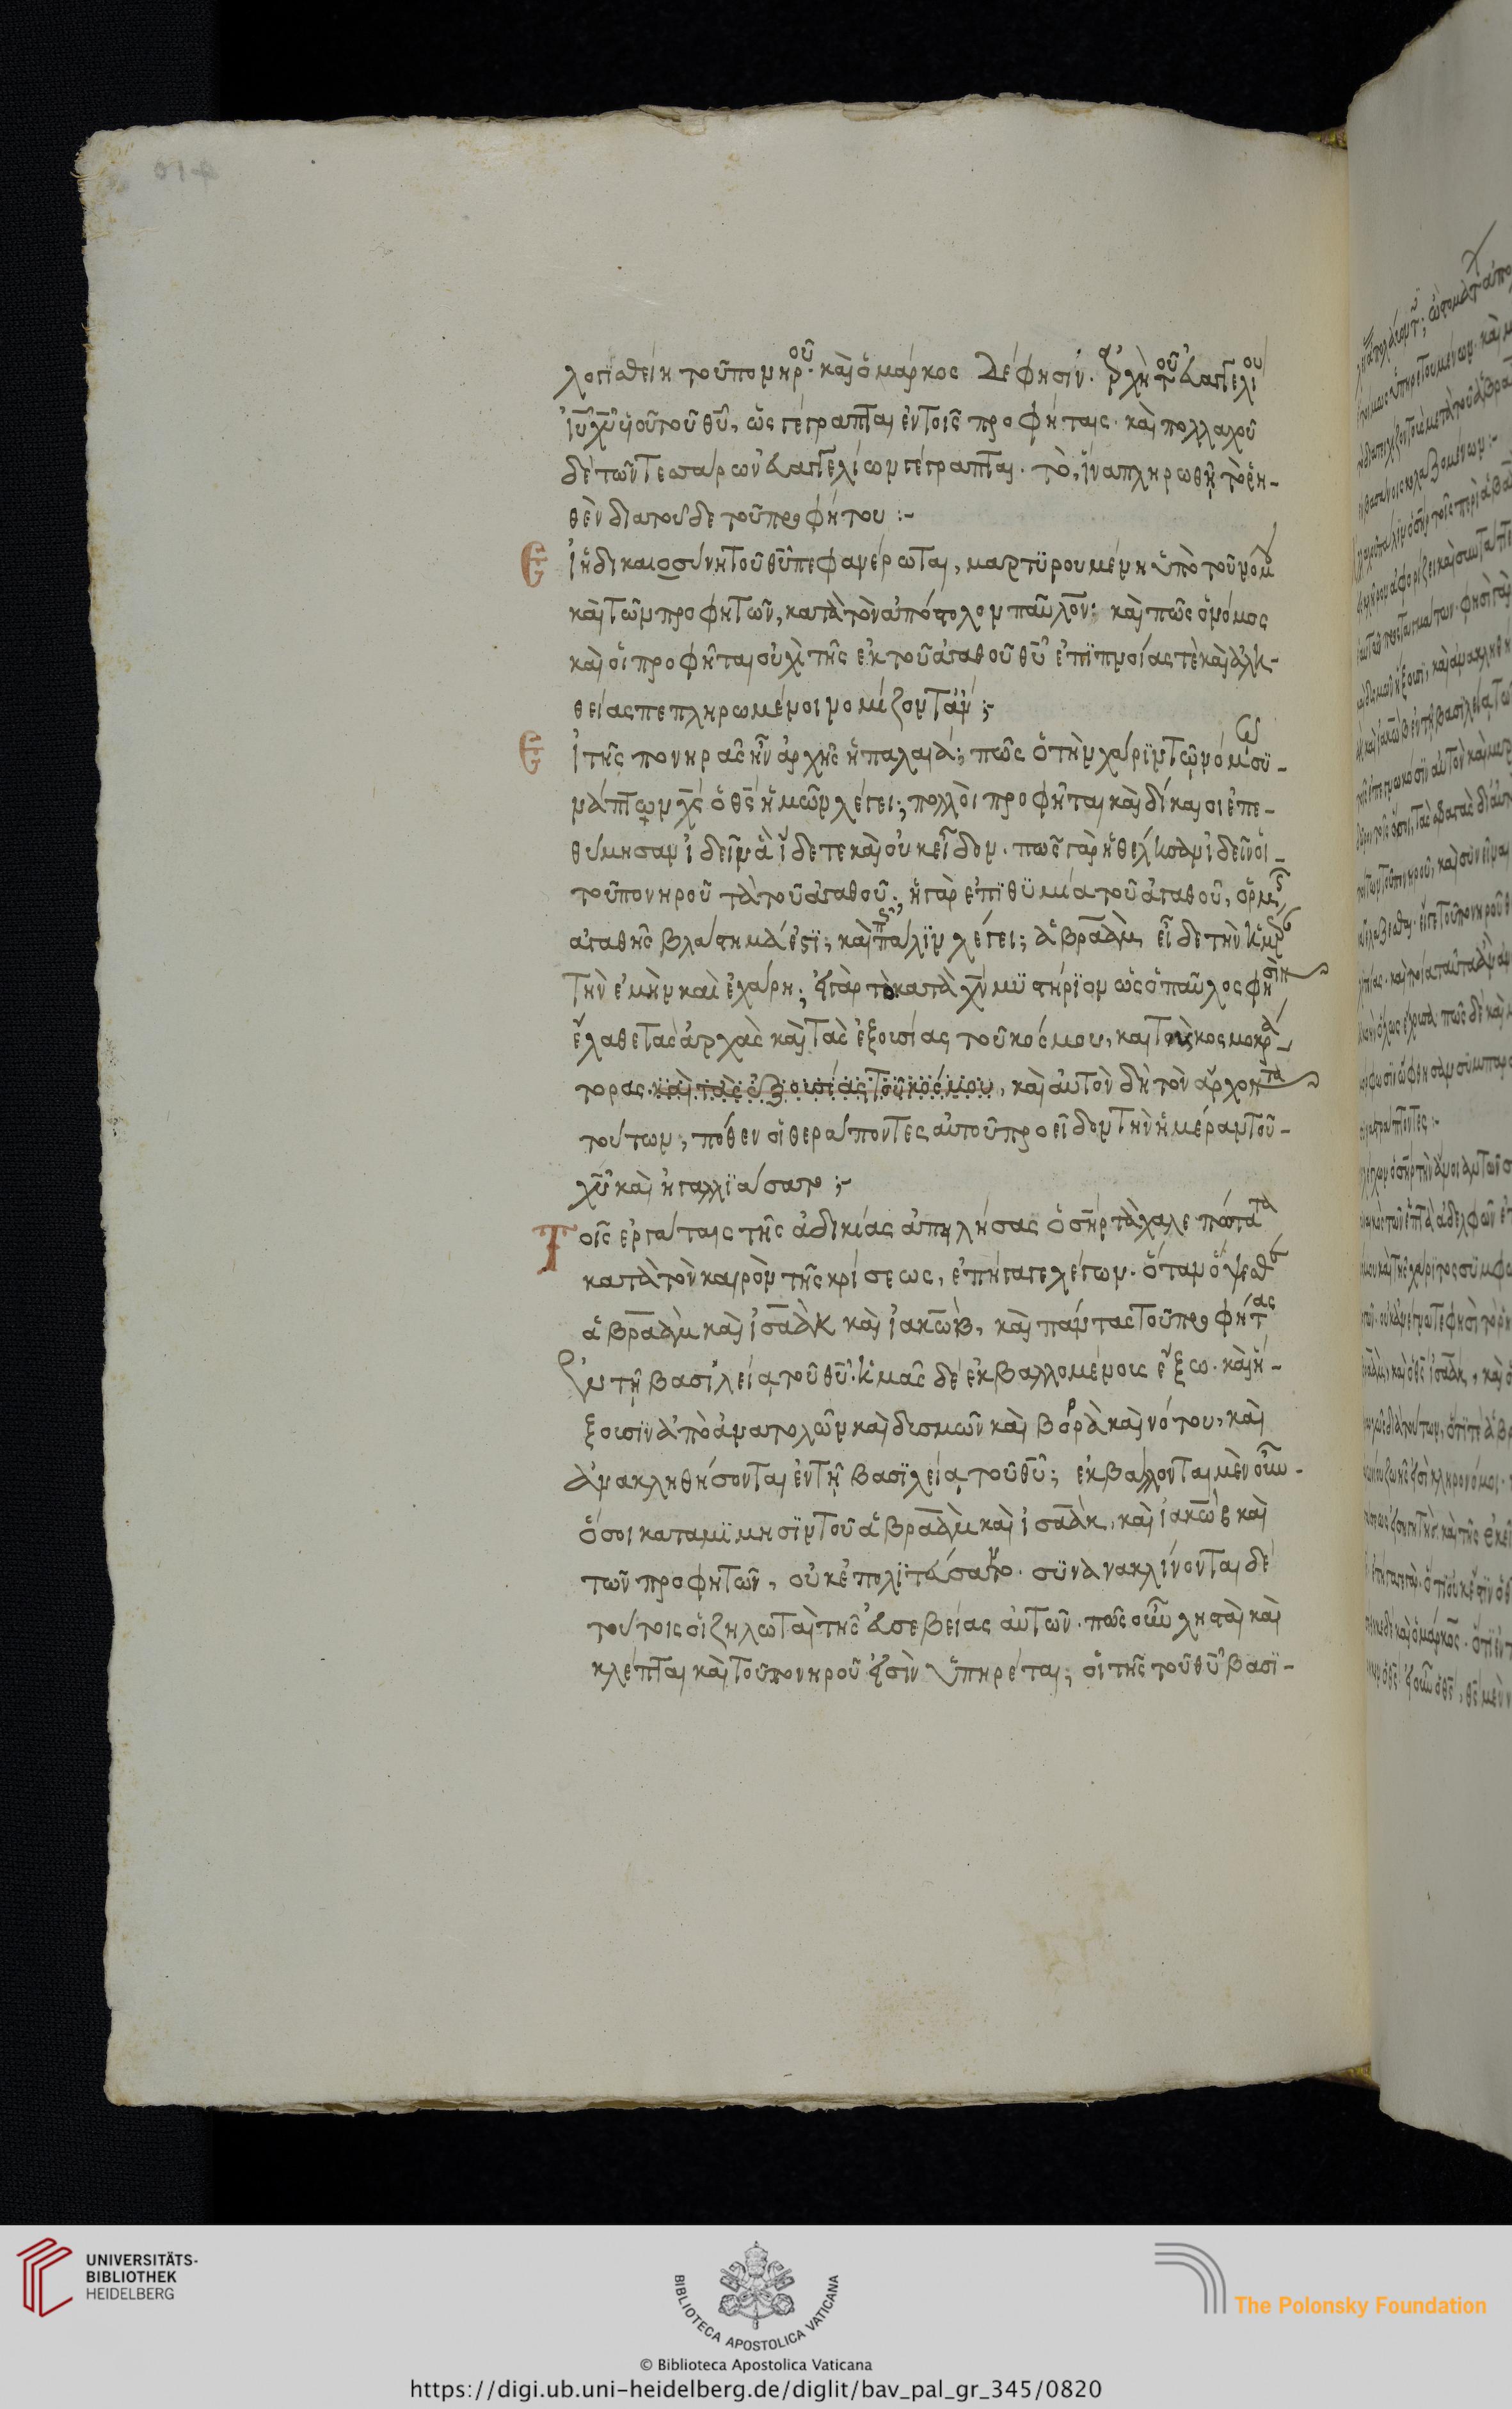 λογισθείη τοῦ πονηροῦ· καὶ ὁ μάρκος δέ φησίν· ἀρχὴ τοῦ εὐαγγελίου
ἰῦ χῦ υἱοῦ τοῦ θῦ, ὡς γέγραπται ἐν τοῖς προφήταις· καὶ πολλαχοῦ
δὲ τῶν τεσσάρων εὐαγγελίων γέγραπται· τὸ, ἵνα πληρωθῇ τὸ ῥη-
θὲν διὰ τοῦδε τοῦ προφήτου :-
Εἰ ἡ δικαιοσύνη τοῦ θῦ πεφανέρωται, μαρτϋρουμένη ὑπὸ τοῦ νόμου
καὶ τῶν προφητῶν, κατὰ τὸν ἀπόστολον παῦλον; καὶ πῶς ὁ νόμος
καὶ οἱ προφῆται οὐχὶ τῆς ἐκ τοῦ ἀγαθοῦ θῦ ἐπϊπνοίας τὲ καὶ ἀλη-
θείας πεπληρωμένοι νομίζονται ;-
Εἰ τῆς πονηρᾶς ἦν ἀρχῆς ἡ παλαιά; πῶς ὁ τὴν χάριν τῷ νόμῳ σϋ-
νάπτων χς ὁ θς ἡμῶν λέγει; πολλοὶ προφῆται καὶ δίκαιοι ἐπε-
θύμησαν ἰδεῖν ἃ ἴδετε καὶ οὐκ εἶδον· πῶς γὰρ ἤθέλησαν ἰδεῖν οἱ
τοῦ πονηροῦ τὰ τοῦ ἀγαθοῦ; ἡ γὰρ ἐπϊθϋμία τοῦ ἀγαθοῦ,
ἀγαθῆς βλάστημα ἐστϊ; καὶ πάλϊν λέγει; ἀβραὰμ εἶδε τὴν ἡμέραν
τὴν ἐμὴν καὶ ἐχάρη; εἰ γὰρ τὸ κατὰ χν μϋστήρϊον ὡς ὁ παῦλος φησὶν
ἔλαθε τὰς ἀρχὰς καὶ τὰς ἐξουσίας τοῦ κόσμου, καὶ τοὺς κοσμοκρά-
τορας. καὶ τὰς ἐξουσίας τοῦ κόσμου, καὶ αὐτὸν δὴ τὸν ἄρχοντα
τούτων; πόθεν οἱ θεράποντες αὐτοῦ προεῖδον τὴν ἡμέραν τοῦ-
χῦ καὶ ἠγαλλϊάσατο ;-
Τοῖς ἐργάταις τῆς ἀδικίας ἀπειλήσας ὁ σηρ τὰ χαλεπώτατα
κατὰ τὸν καιρὸν τῆς κρίσεως, ἐπήγαγε λέγων· ὅταν ὄψεσθε
ἀβραὰμ καὶ ἰσαὰκ καὶ ἰακὼβ, καὶ πάντας τοὺς προφήτας
ἐν τῇ βασιλείᾳ τοῦ θῦ· ὑμᾶς δὲ ἐκβαλλομένους ἔξω· καὶ ἥ-
ξουσϊν ἀπὸ ἀνατολῶν καὶ δυσμῶν καὶ βορρὰ καὶ νότου, καὶ
ἀνακληθήσονται ἐν τῇ βασϊλείᾳ τοῦ θῦ; ἐκβάλλονται μὲν οὖν
ὅσοι κατα μίμησϊν τοῦ ἀβραὰμ καὶ ἰσαὰκ, καὶ ἰακὼβ καὶ
τῶν προφητῶν, οὐκ ἐπολϊτεύσαντο· σϋνανακλίνονται δὲ
τούτοις οἱ ζηλωταὶ τῆς εὐσεβείας αὐτῶν· πῶς οὖν λησταὶ καὶ
κλέπται καὶ τοῦ πονηροῦ εἰσὶν ὑπηρέται; οἱ τῆς τοῦ θῦ βασϊ-
UNIVERSITÄTS-
BIBLIOTHEK
HEIDELBERG
BIBLIOTECA APOSTOLICA VATICANA
The Polonsky Foundation
© Biblioteca Apostolica Vaticana
https://digi.ub.uni-heidelberg.de/diglit/bav_pal_gr_345/0820